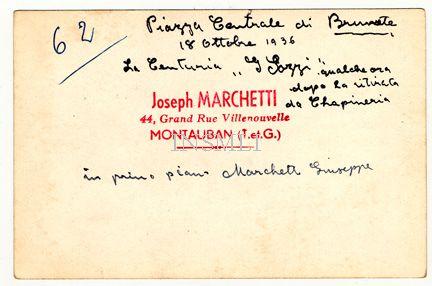 62
Piazza Centrale di Brunete
18 Ottobre 1936
La Centuria "G Sozzi" qualche ora
dopo la ritirata
da Chapineria
Joseph MARCHETTI
44, Grand Rue Villenouvelle
MONTAUBAN (T.et G.)
INSMLI
in primo piano Marchetti Giuseppe